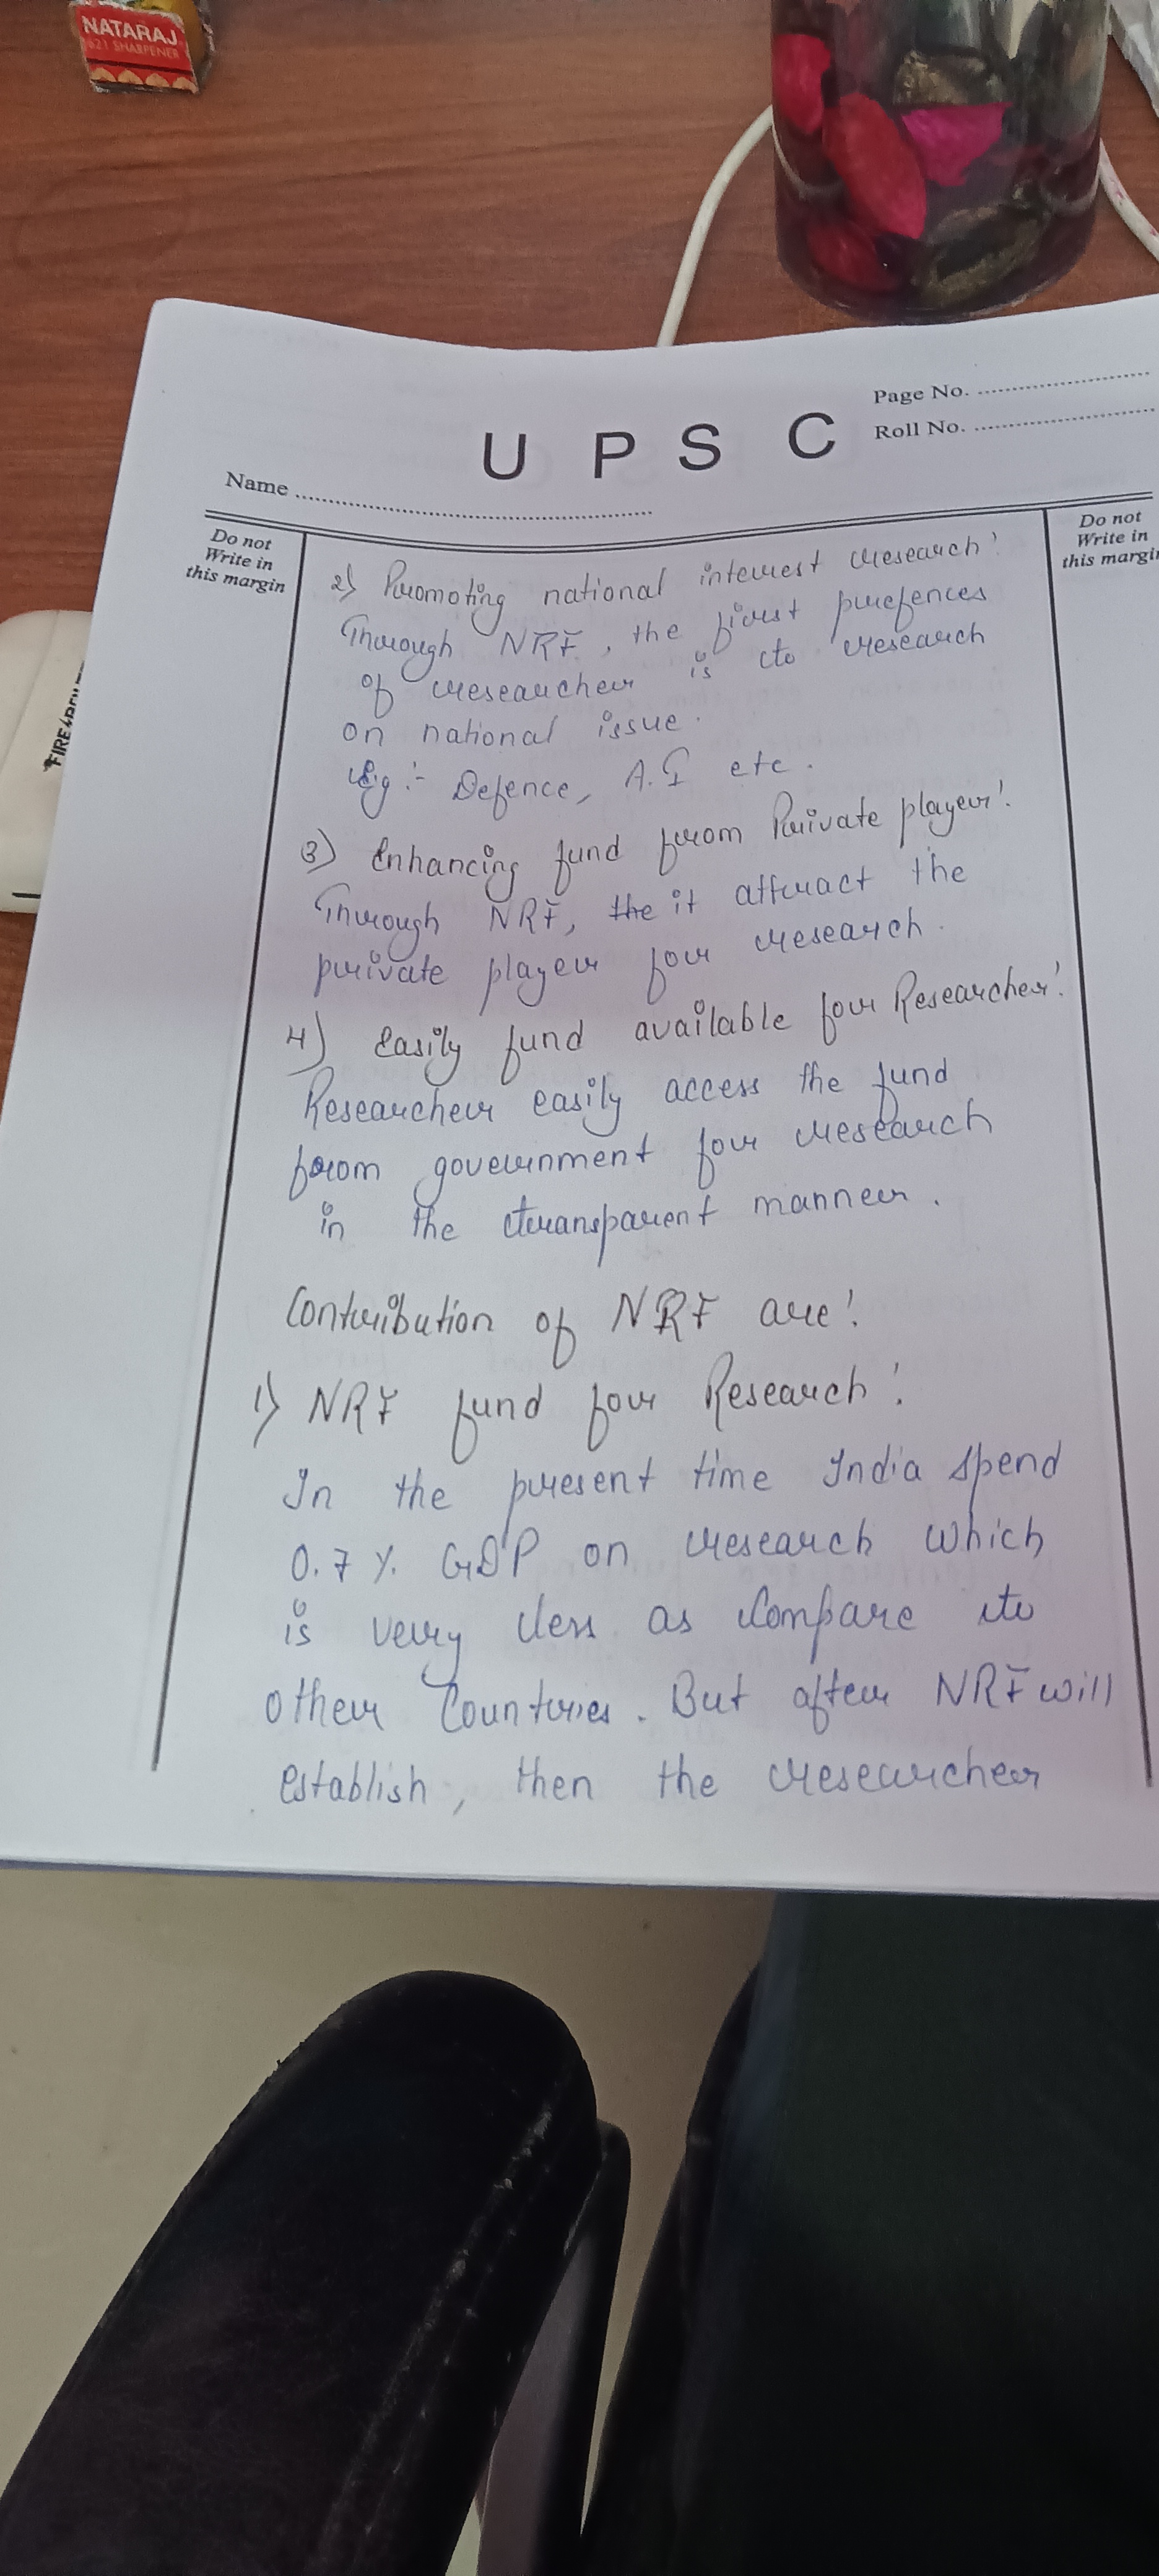 NATARAJ
621 SHARPENER
Page No.
Roll No.
U P S C
Name
Do not
Write in
this margin
Do not
Write in
this margin
2) Promoting national interest research:
Through NRF, the first prefences
of researcher is to research
on national issue.
Eg:- Defence, A.I etc.
3) Enhancing fund from Private player:
Through NRF, the it attract the
private player for research.
4) Easily fund available for Researcher:
Researcher easily access the fund
from government for research
in the transparent manner.
Contribution of NRF are:
1) NRF fund for Research:
In the present time India spend
0.7% GDP on research which
is very less as compare to
other countries. But after NRF will
establish, then the researcher